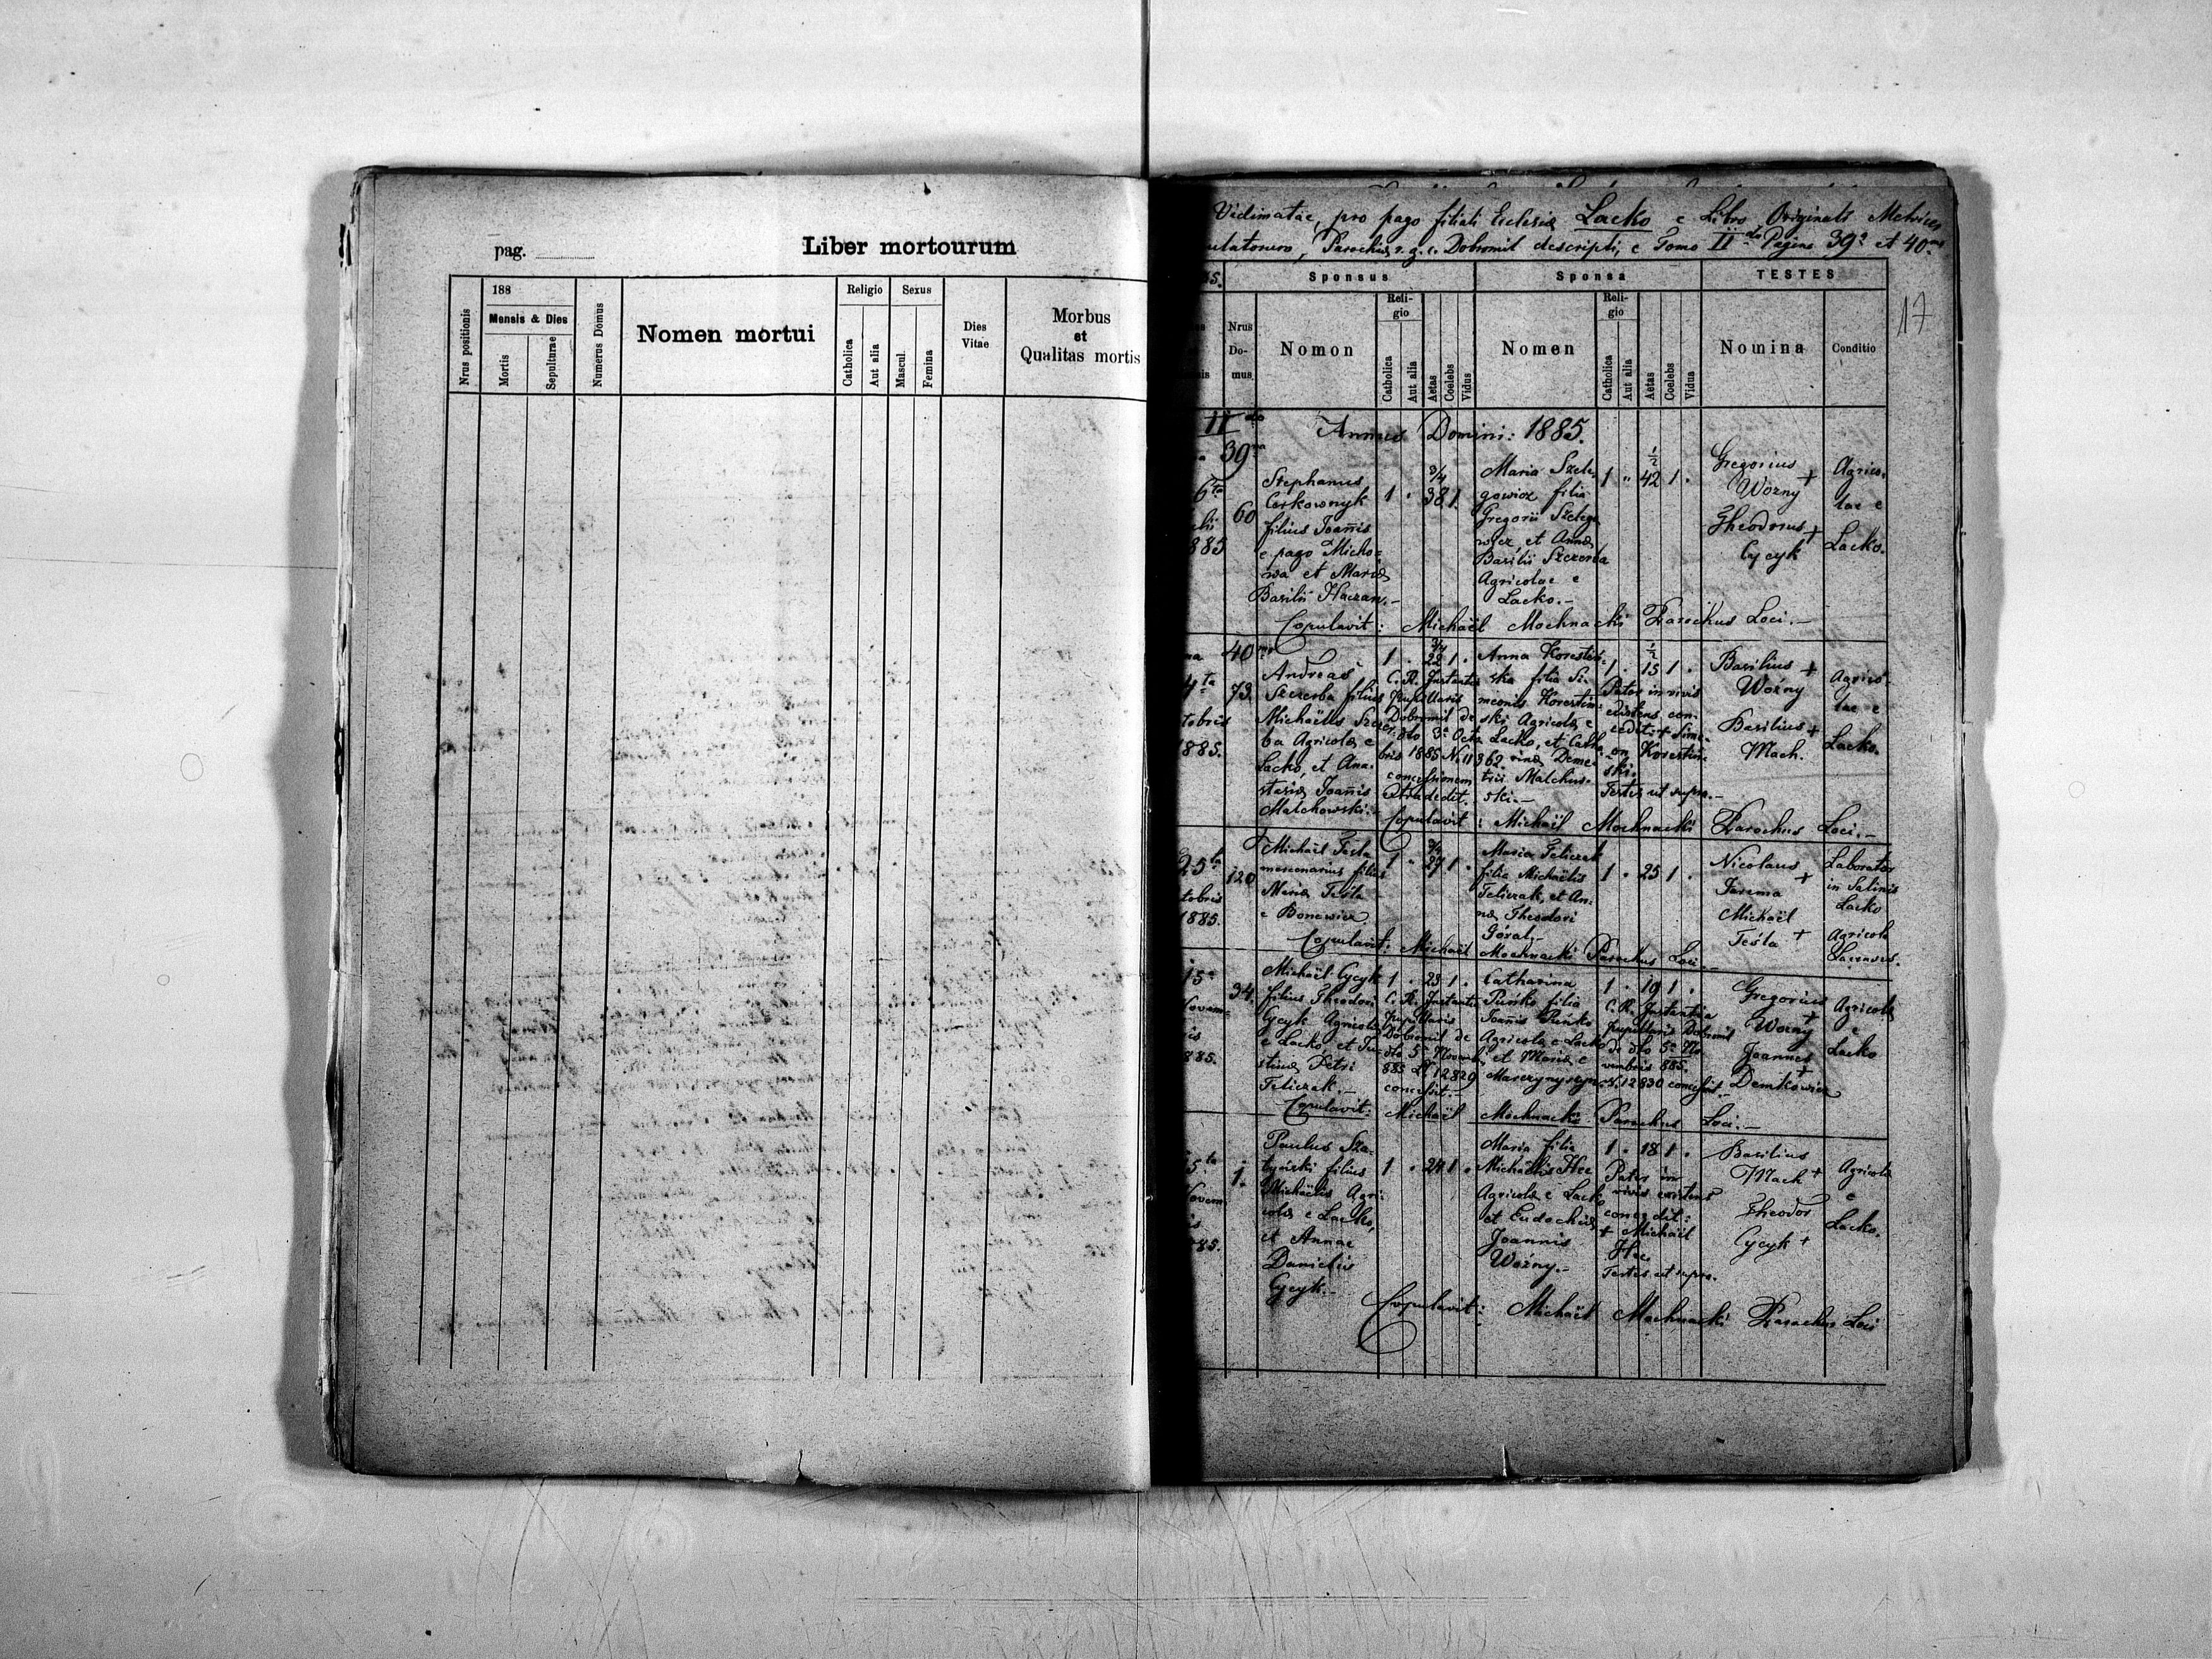 pag.
Liber mortourum
Nrus positionis
188
Mensis & Dies
Mortis
Sepulturae
Numerus Domus
Nomen mortui
Religio
Catholica
Aut alia
Sexus
Mascul.
Femina
Dies
Vitae
Morbus
et
Qualitas mortis
Vidimatae, pro pago filiali Ecclesia Lacko e Libro Originali Metrices
Parochia r. g. c. Dobromil descripti, e Tomo II do Pagina 39a et 40ma
17
Sponsus
Sponsa
TESTES
Nrus
Do-
mus
Nomon
Reli-
gio
Catholica
Aut alia
Aetas
Coelebs
Vidus
Nomen
Reli-
gio
Catholica
Aut alia
Aetas
Coelebs
Vidua
Nomina
Conditio
II do
Annus Domini: 1885.
39
60
Stephanus
Cerkownyk
filius Joannis
e pago Micho=
wa et Maria
Basilii Haczan.-
1 38 1.
Maria Szele-
gowicz filia
Gregorii Szelego
wicz, et Anna
Basilii Szczerba
Agricolae e
Lacko.-
1 " 42 1 .
Gregorius +
Wozny
Theodorus +
Cycyk
Agrico-
lae e
Lacko.
Copulavit: Michaël Mochnacki Parochus Loci.-
40
73.
tobris
1885.
Andreas
Szczerba filius
Michaëlis Szczer
ba Agricola e
Lacko, et Ana-
stasia Joannis
Malchowski.-
1 . 22 1 .
C. R. Instantia
Pupillaris
Dobromil de
dto 3a Octo
bris 1885 N. 11362
concessionem
extradedit.
Anna Korestin-
ska filia Si-
meonis Korestin-
ski Agricola e
Lacko, et Catha
rina Deme-
trii Malchus-
ski.-
1 . 15 1 .
Pater in vivis
existens con-
cedit: + Sime-
on Korestin-
ski.
Testes ut supra.-
Basilius +
Woźny
Basilius +
Mach.
Agrico-
lae e
Lacko.
Copulavit: Michaël Mochnacki Parochus Loci.-
25ta
tobris
1885.
120
Michaël Tesla
mercenarius filius
Maria Tesla
e Bonewice
1 " 27 1 .
Maria Teliczak
filia Michaëlis
Teliczak, et An-
na Theodori
Góral.-
1 . 25 1 .
Nicolaus +
Jarema
Michaël
Tesla +
Laborator
in Salinis
Lacko
Agricola
Copulavit: Michaël Mochnacki Parochus Loci.-
15a
34.
Michaël Cycyk
filius Theodori
Cycyk Agricola
e Lacko et Ju-
stina Petri
Teliczak.-
1 . 23 1 .
C. R. Instantia
Pupillaris
Dobromil de
dto 5a Novemb.
885 N. 12829
concessit.-
Catharina
Puńko filia
Joannis Puńko
Agricola e Lacko
et Maria e
1 . 19 1 .
C. R. Instantia
Pupillaris Dobromil
de dto 5a No
vembris 885.
N. 12830 concessit.
Gregorius +
Wozny
Joannes +
Demkowicz
Agricola
e
Lacko
Copulavit: Michaël Mochnacki Parochus Loci.-
1.
Paulus Sza-
tyński filius
Michaëlis Agri-
cola e Lacko,
et Annae
Danielis
Cycyk.-
1 . 24 1 .
Maria filia
Michaëlis Hec
Agricola e Lacko
et Eudochia
Joannis
Woźny.-
1 . 18 1 .
Pater in
vivis existens
concedit:
+ Michaël
Hec
Testes ut supra.
Basilius
Mach +
Theodor
Cycyk +
Agricola
e
Lacko.
Copulavit: Michaël Mochnacki Parochus Loci